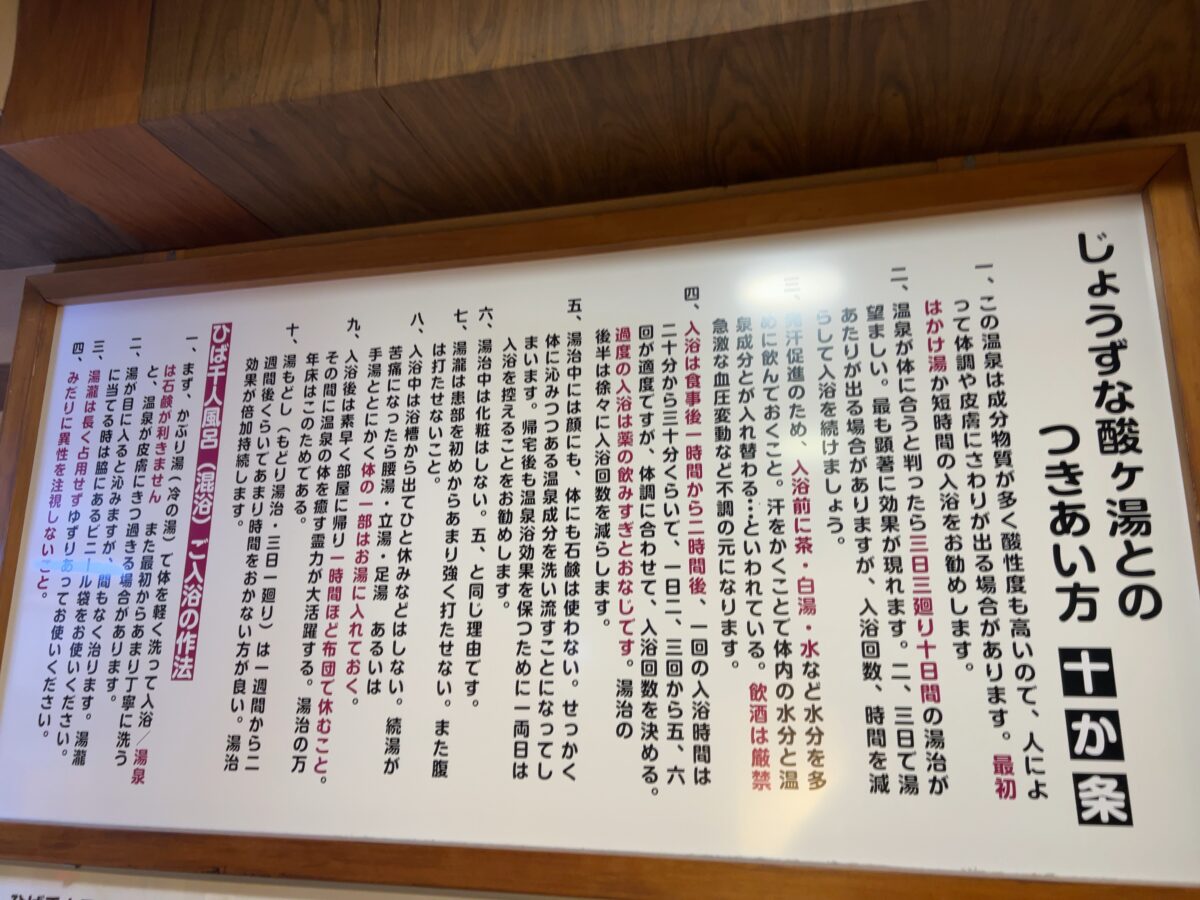 じょうずな酸ヶ湯との
つきあい方 十か条
一、この温泉は成分物質が多く酸性度も高いので、人によ
って体調や皮膚にさわりが出る場合があります。最初
はかけ湯か短時間の入浴をお勧めします。
二、温泉が体に合うと判ったら三日三廻り十日間の湯治が
望ましい。最も顕著に効果が現れます。二、三日で湯
あたりが出る場合がありますが、入浴回数、時間を減
らして入浴を続けましょう。
三、発汗促進のため、入浴前に茶・白湯・水など水分を多
めに飲んでおくこと。汗をかくことで体内の水分と温
泉成分とが入れ替わる…といわれている。飲酒は厳禁
急激な血圧変動など不調の元になります。
四、入浴は食事後一時間から二時間後、一回の入浴時間は
二十分から三十分くらいで、一日二、三回から五、六
回が適度ですが、体調に合わせて、入浴回数を決める。
過度の入浴は薬の飲みすぎとおなじです。湯治の
後半は徐々に入浴回数を減らします。
五、湯治中には顔にも、体にも石鹸は使わない。せっかく
体に沁みつつある温泉成分を洗い流すことになってし
まいます。帰宅後も温泉浴効果を保つために一両日は
入浴を控えることをお勧めします。
六、湯治中は化粧はしない。五、と同じ理由です。
七、湯瀧は患部を初めからあまり強く打たせない。また腹
は打たせないこと。
八、入浴中は浴槽から出てひと休みなどはしない。続湯が
苦痛になったら腰湯・立湯・足湯 あるいは
手湯とにかく体の一部はお湯に入れておく。
九、入浴後は素早く部屋に帰り一時間ほど布団で休むこと。
その間に温泉の体を癒す霊力が大活躍する。湯治の万
年床はこのためである。
十、湯もどし（もどり湯治・三日一廻り）は一週間から二
週間後くらいであまり時間をおかない方が良い。湯治
効果が倍加持続します。
ひば千人風呂（混浴）ご入浴の作法
一、まず、かぶり湯（冷の湯）で体を軽く洗って入浴／湯泉
は石鹸が利きません また最初からあまり丁寧に洗う
と、温泉が皮膚にきつ過ぎる場合があります。
二、湯が目に入ると沁みますが、間もなく治ります。湯瀧
に当てる時は脇にあるビニール袋をお使いください。
三、湯瀧は長く占用せずゆずりあってお使いください。
四、みだりに異性を注視しないこと。